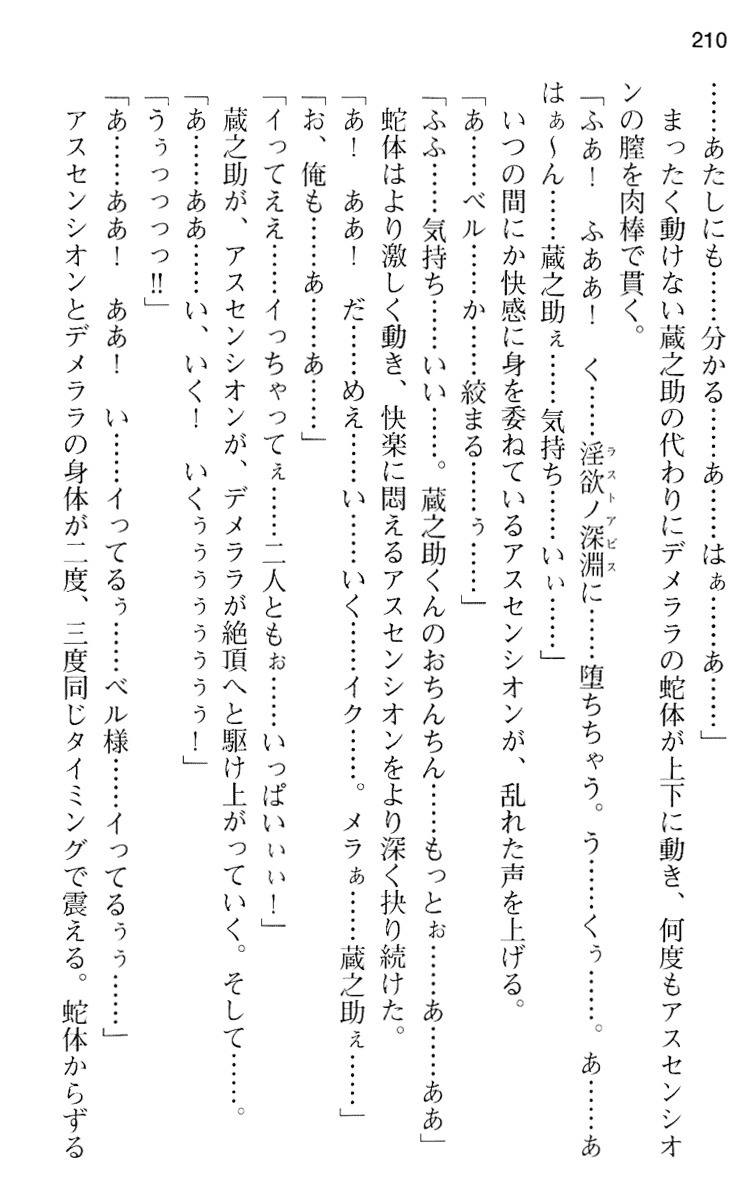 210
……あたしにも……分かる……あ……はぁ……あ……」
まったく動けない蔵之助の代わりにデメララの蛇体が上下に動き、何度もアスセンシオ
ンの膣を肉棒で貫く。
「ふあ！　ふああ！　く……淫欲ノ深淵に……堕ちちゃう。う……くぅ……。あ……あ
ラストアビス
はぁ～ん……蔵之助ぇ……気持ち……いぃ……」
いつの間にか快感に身を委ねているアスセンシオンが、乱れた声を上げる。
「あ……ベル……か……絞まる……ぅ……」
「ふふ……気持ち……いい……。蔵之助くんのおちんちん……もっとぉ……あ……ああ」
蛇体はより激しく動き、快楽に悶えるアスセンシオンをより深く抉り続けた。
「あ！　ああ！　だ……めえ……い……いく……イク……。メラぁ……蔵之助ぇ……」
「お、俺も……あ……あ……」
「イってええ……イっちゃってぇ……二人ともぉ……いっぱいいぃぃ！」
蔵之助が、アスセンシオンが、デメララが絶頂へと駆け上がっていく。そして……。
「あ……ああ……い、いく！　いくぅぅぅぅぅぅぅ！」
「うぅっっっっ!!」
「あ……ああ！　ああ！　い……イってるぅ……ベル様……イってるぅぅ……」
アスセンシオンとデメララの身体が二度、三度同じタイミングで震える。蛇体からずる